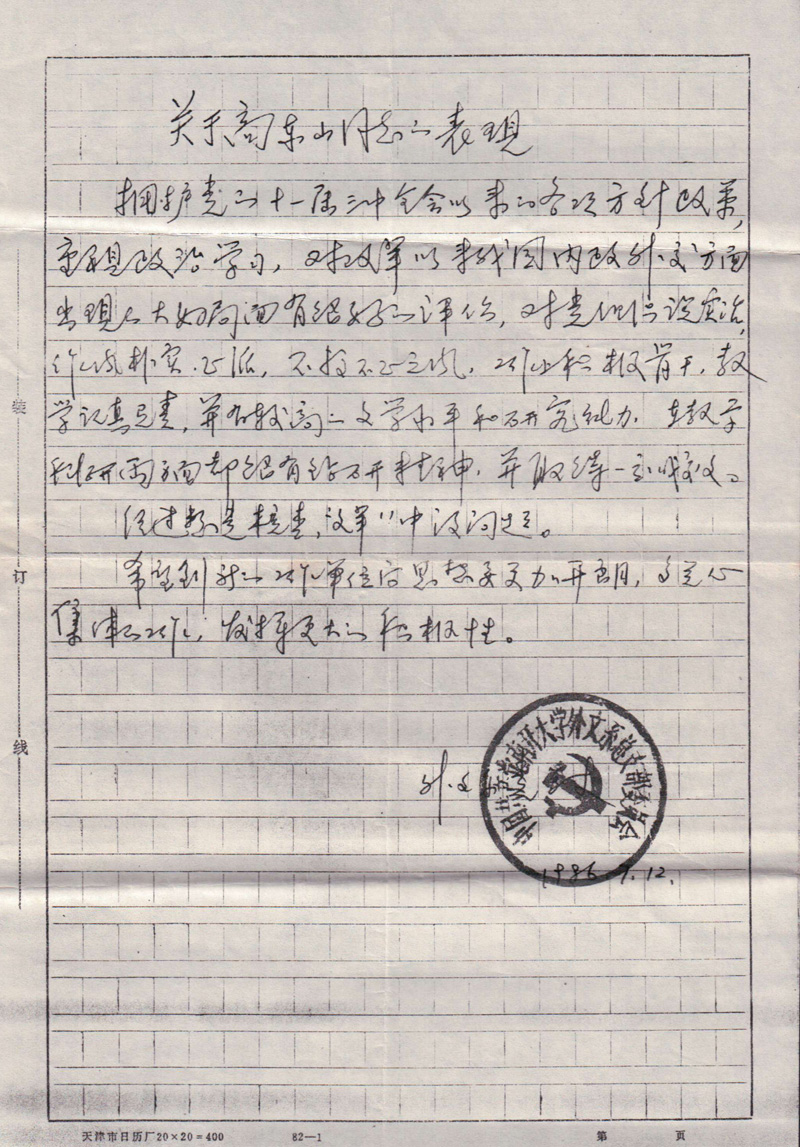 关于高东山同志的表现
拥护党的十一届三中全会以来的各项方针政策,
重视政治学习,对改革以来我国内政外交方面
出现的大好局面有很好的评价,对党组织说实话,
作风朴实、正派,不搞不正之风,工作上积极肯干,教
学认真负责,并有较高的文学水平和研究能力,在教学
科研两方面都很有钻研精神,并取得一定成效。
经过数是核查,"文革"中没问题。
希望到新的工作单位后思想要更加开朗,多关心
集体的工作,发挥更大的积极性。
外文
中国共产党南开大学外文系总支部委员会
1986.7.12.
装
订
线
天津市日历厂20×20=400
82—1
第 页